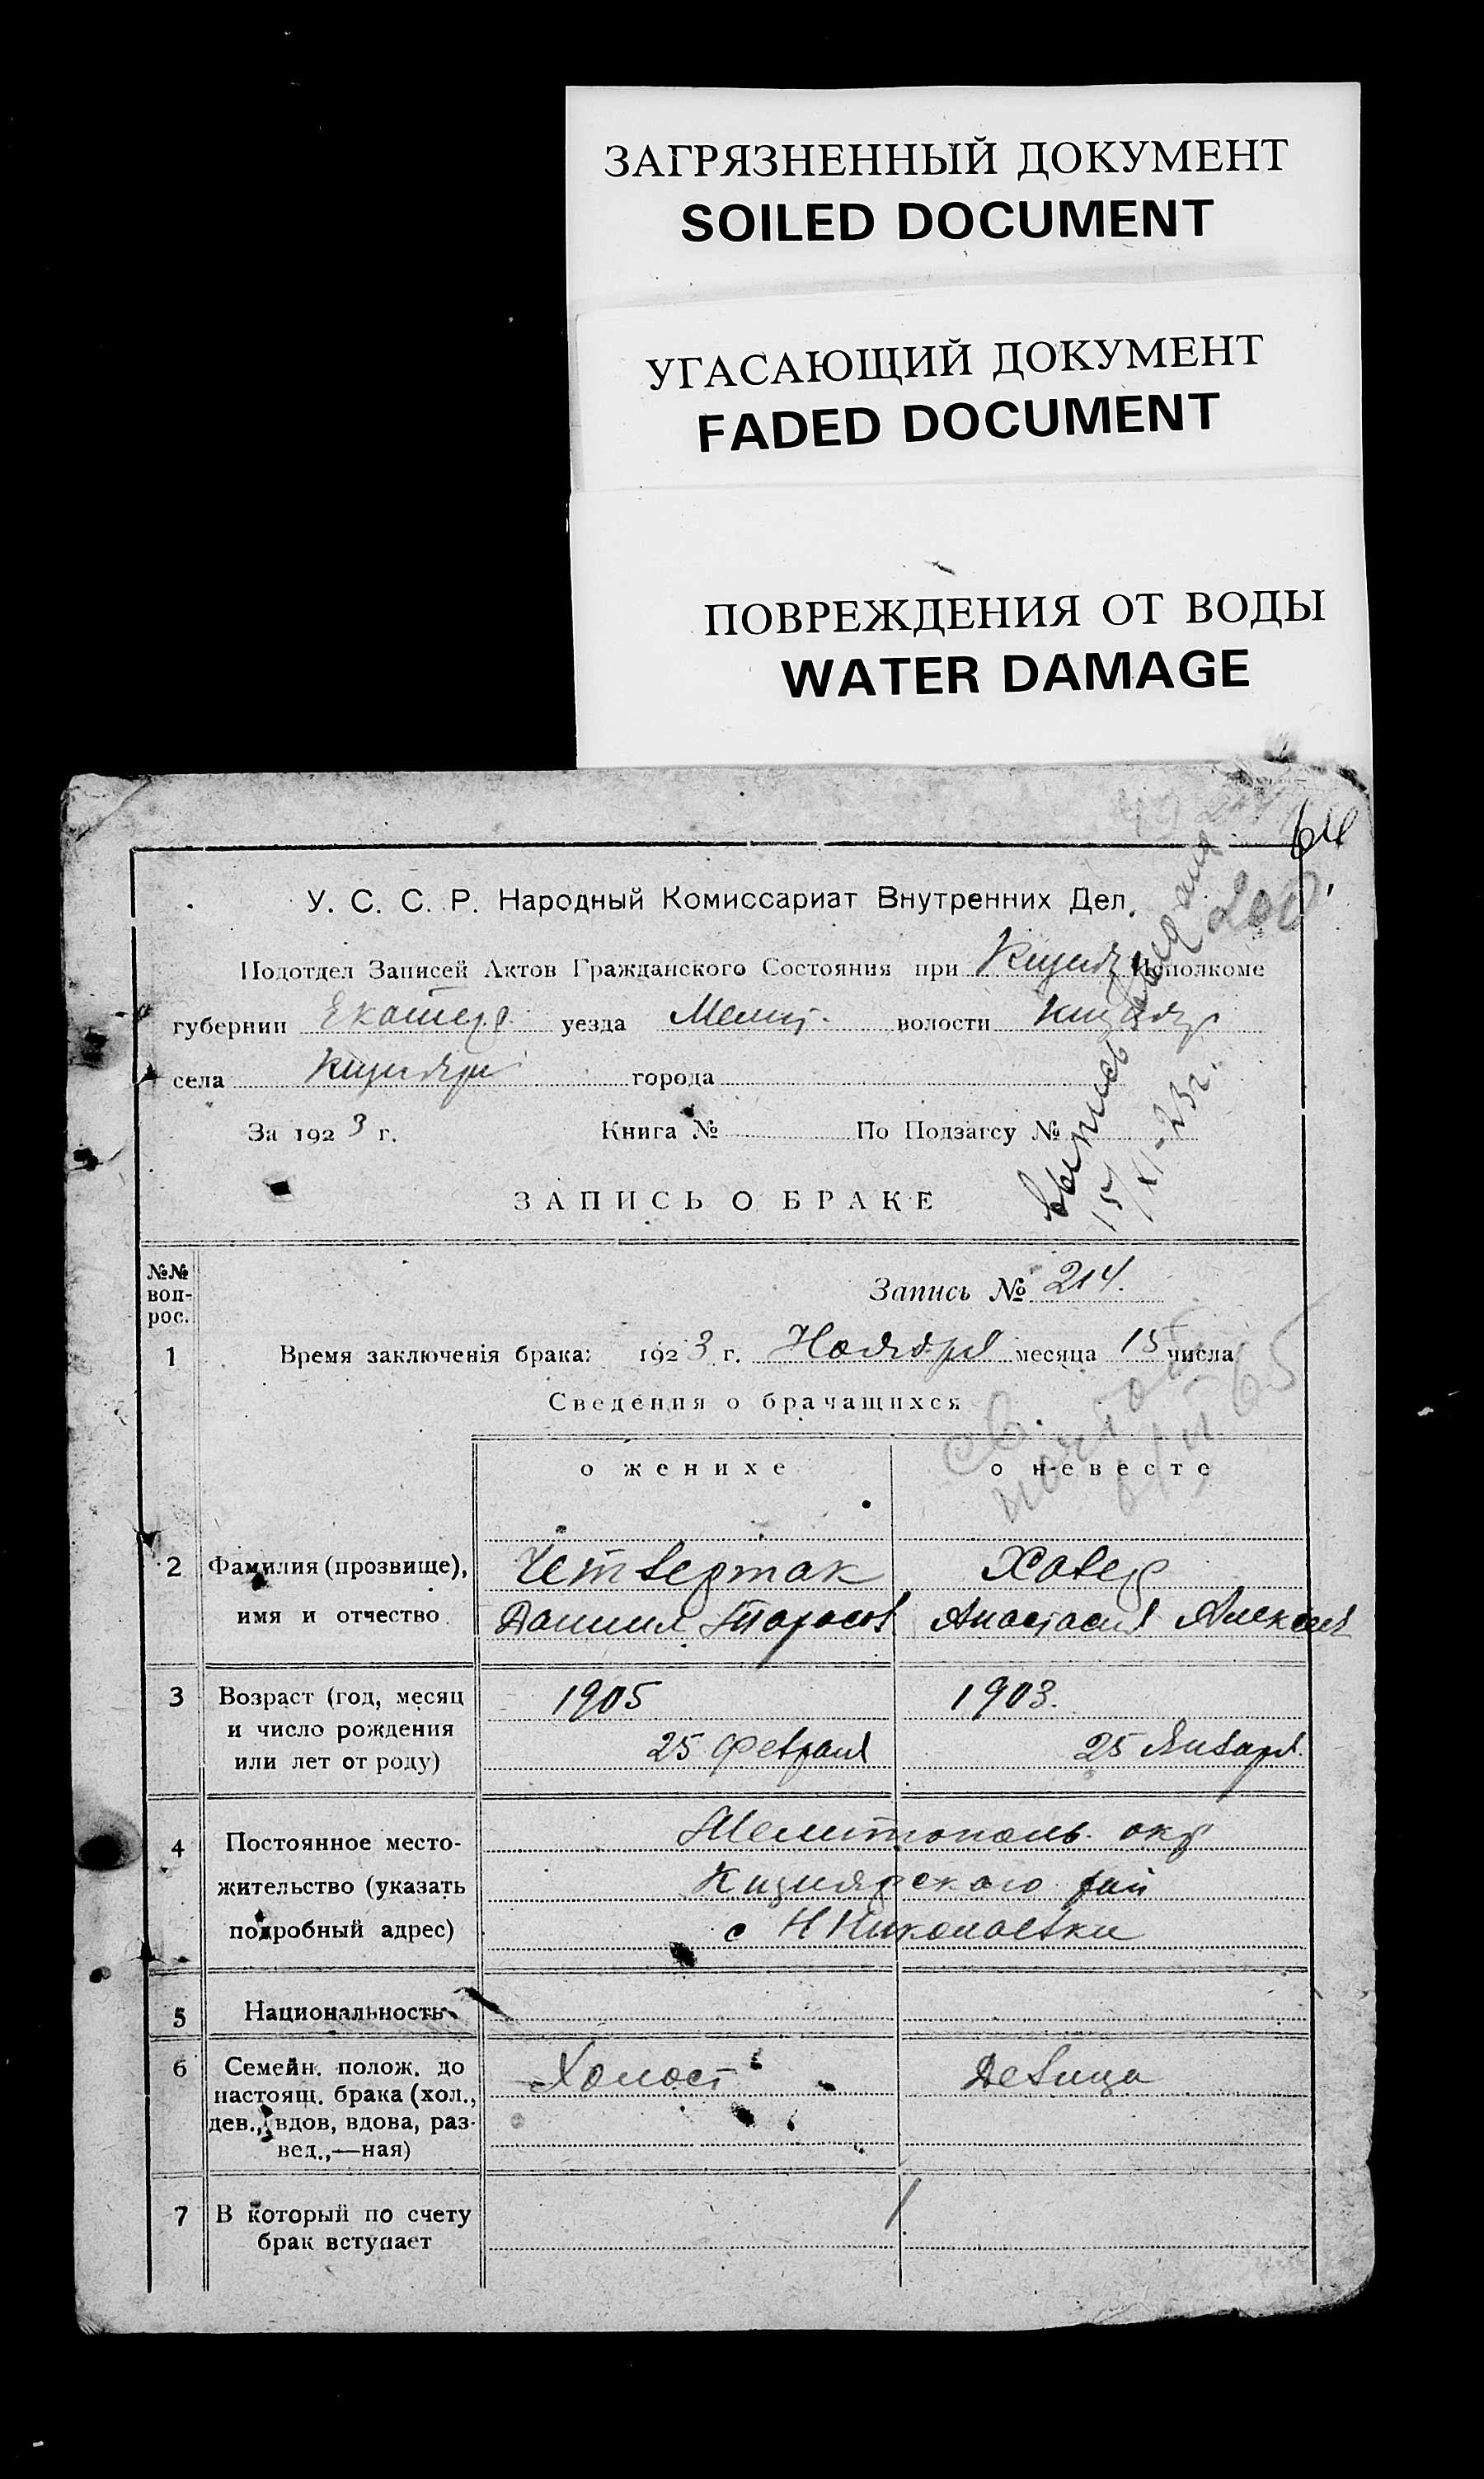 ЗАГРЯЗНЕННЫЙ ДОКУМЕНТ
SOILED DOCUMENT
УГАСАЮЩИЙ ДОКУМЕНТ
FADED DOCUMENT
ПОВРЕЖДЕНИЯ ОТ ВОДЫ
WATER DAMAGE
64
200
У. С. С. Р. Народный Комиссариат Внутренних Дел.
Подотдел Записей Актов Гражданского Состояния при Исполкоме
губернии Екатер. уезда Мелит. волости
села города
За 1923 г. Книга № По Подзагсу №
Выпись
15/XI-23г.
ЗАПИСЬ О БРАКЕ
№№ воп-рос.
Запись № 214.
1 Время заключенія брака: 1923 г. Ноября месяца 15 числа
Сведения о брачащихся
о женихе о невесте
2 Фамилия (прозвище), Четвертак Ховер
имя и отчество Даниил Тарасов Анастасия Алексеев
3 Возраст (год, месяц 1905 1903.
и число рождения 25 Февраля 25 Января
или лет от роду)
4 Постоянное место- Мелитополь. окр
жительство (указать Кизиярского рай
подробный адрес) с Н Николаевки
5 Национальность
6 Семейн. полож. до Холост Девица
настоящ. брака (хол.,
дев., вдов, вдова, раз-
вед.,—ная)
7 В который по счету 1
брак вступает